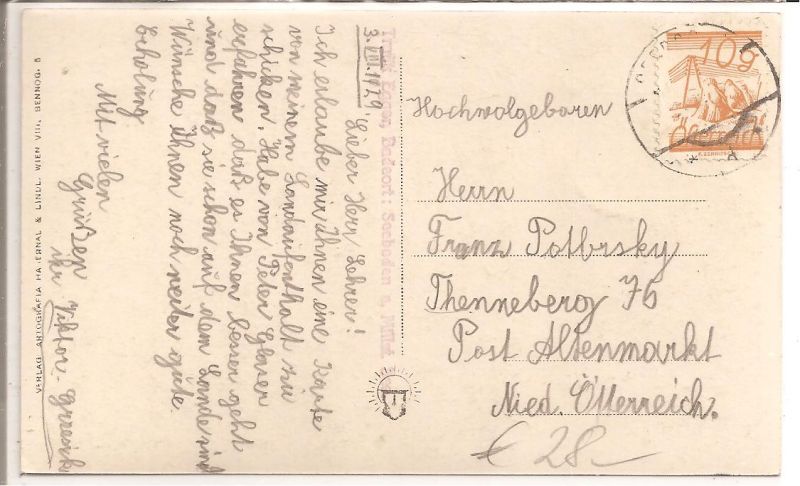 3. VIII. 1929
Lieber Herr Lehrer!
Ich erlaube mir Ihnen eine Karte
von meinem Landaufenthalt zu
schicken. Habe von Peter Glaser
erfahren daß es Ihnen besser geht
und daß sie schon auf dem Lande sind
Wünsche Ihnen noch weiter gute
Erholung
Mit vielen
Grüßen
ihr Viktor
Hochwolgeboren
Herrn
Franz Potbrsky
Thenneberg 76
Post Altenmarkt
Nied. Österreich.
€ 28-
10g
Österreich
Badeort: Seeboden a.
VERLAG ARTOGRAFIA HAJERNAL & LINDL, WIEN VIII, BENNOG. 8